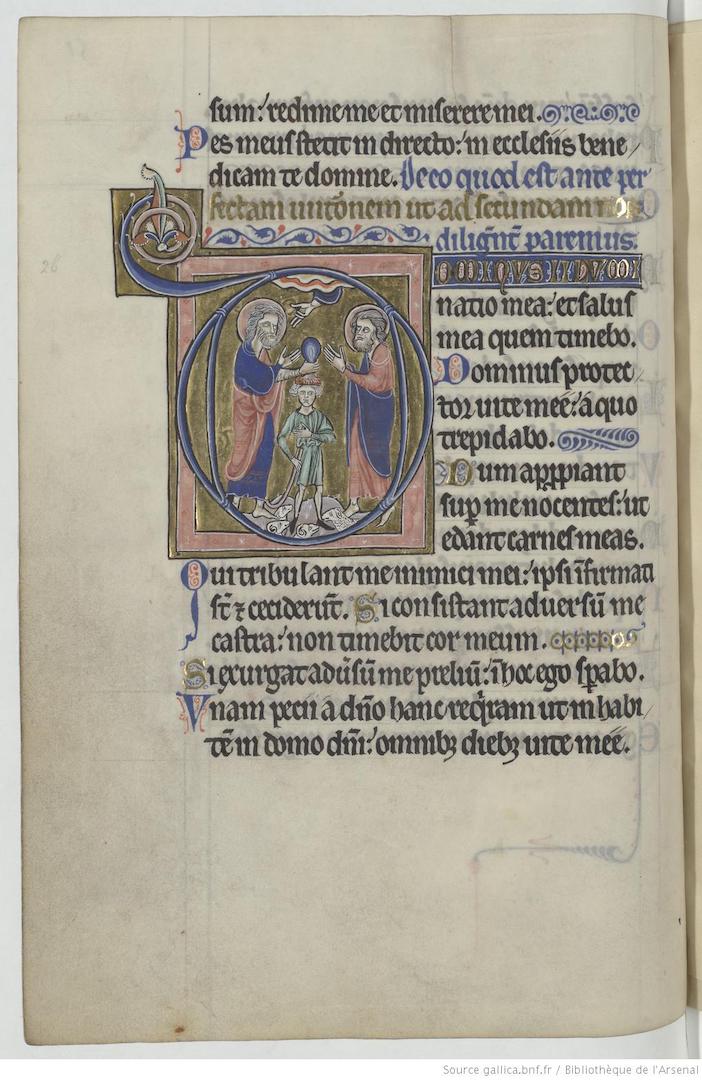 sum: redime me et miserere mei.
Pes meus stetit in directo: in ecclesiis bene/
dicam te domine. De eo quod est ante per
fectam unctõnem ut ad secundam
diligent̃ paremus.
DOMINUS ILLUMI
natio mea: et salus
mea quem timebo.
Dominus protec
tor uite mee: a quo
trepidabo.
Dum apꝓpiant
suꝑ me nocentes: ut
edant carnes meas.
Qui tribulant me inimici mei: ipsi ĩfirmati
st̃ ⁊ ceciderũt. Si consistant aduersũ me
castra: non timebit cor meum.
Si exurgat adũsũ me preliũ: ĩ hoc ego sꝑabo.
Vnam pecii a dño hanc req̃ram ut inhabi/
tẽ in domo dñi: omnibꝫ diebꝫ uite mee.
26
Source gallica.bnf.fr / Bibliothèque de l'Arsenal